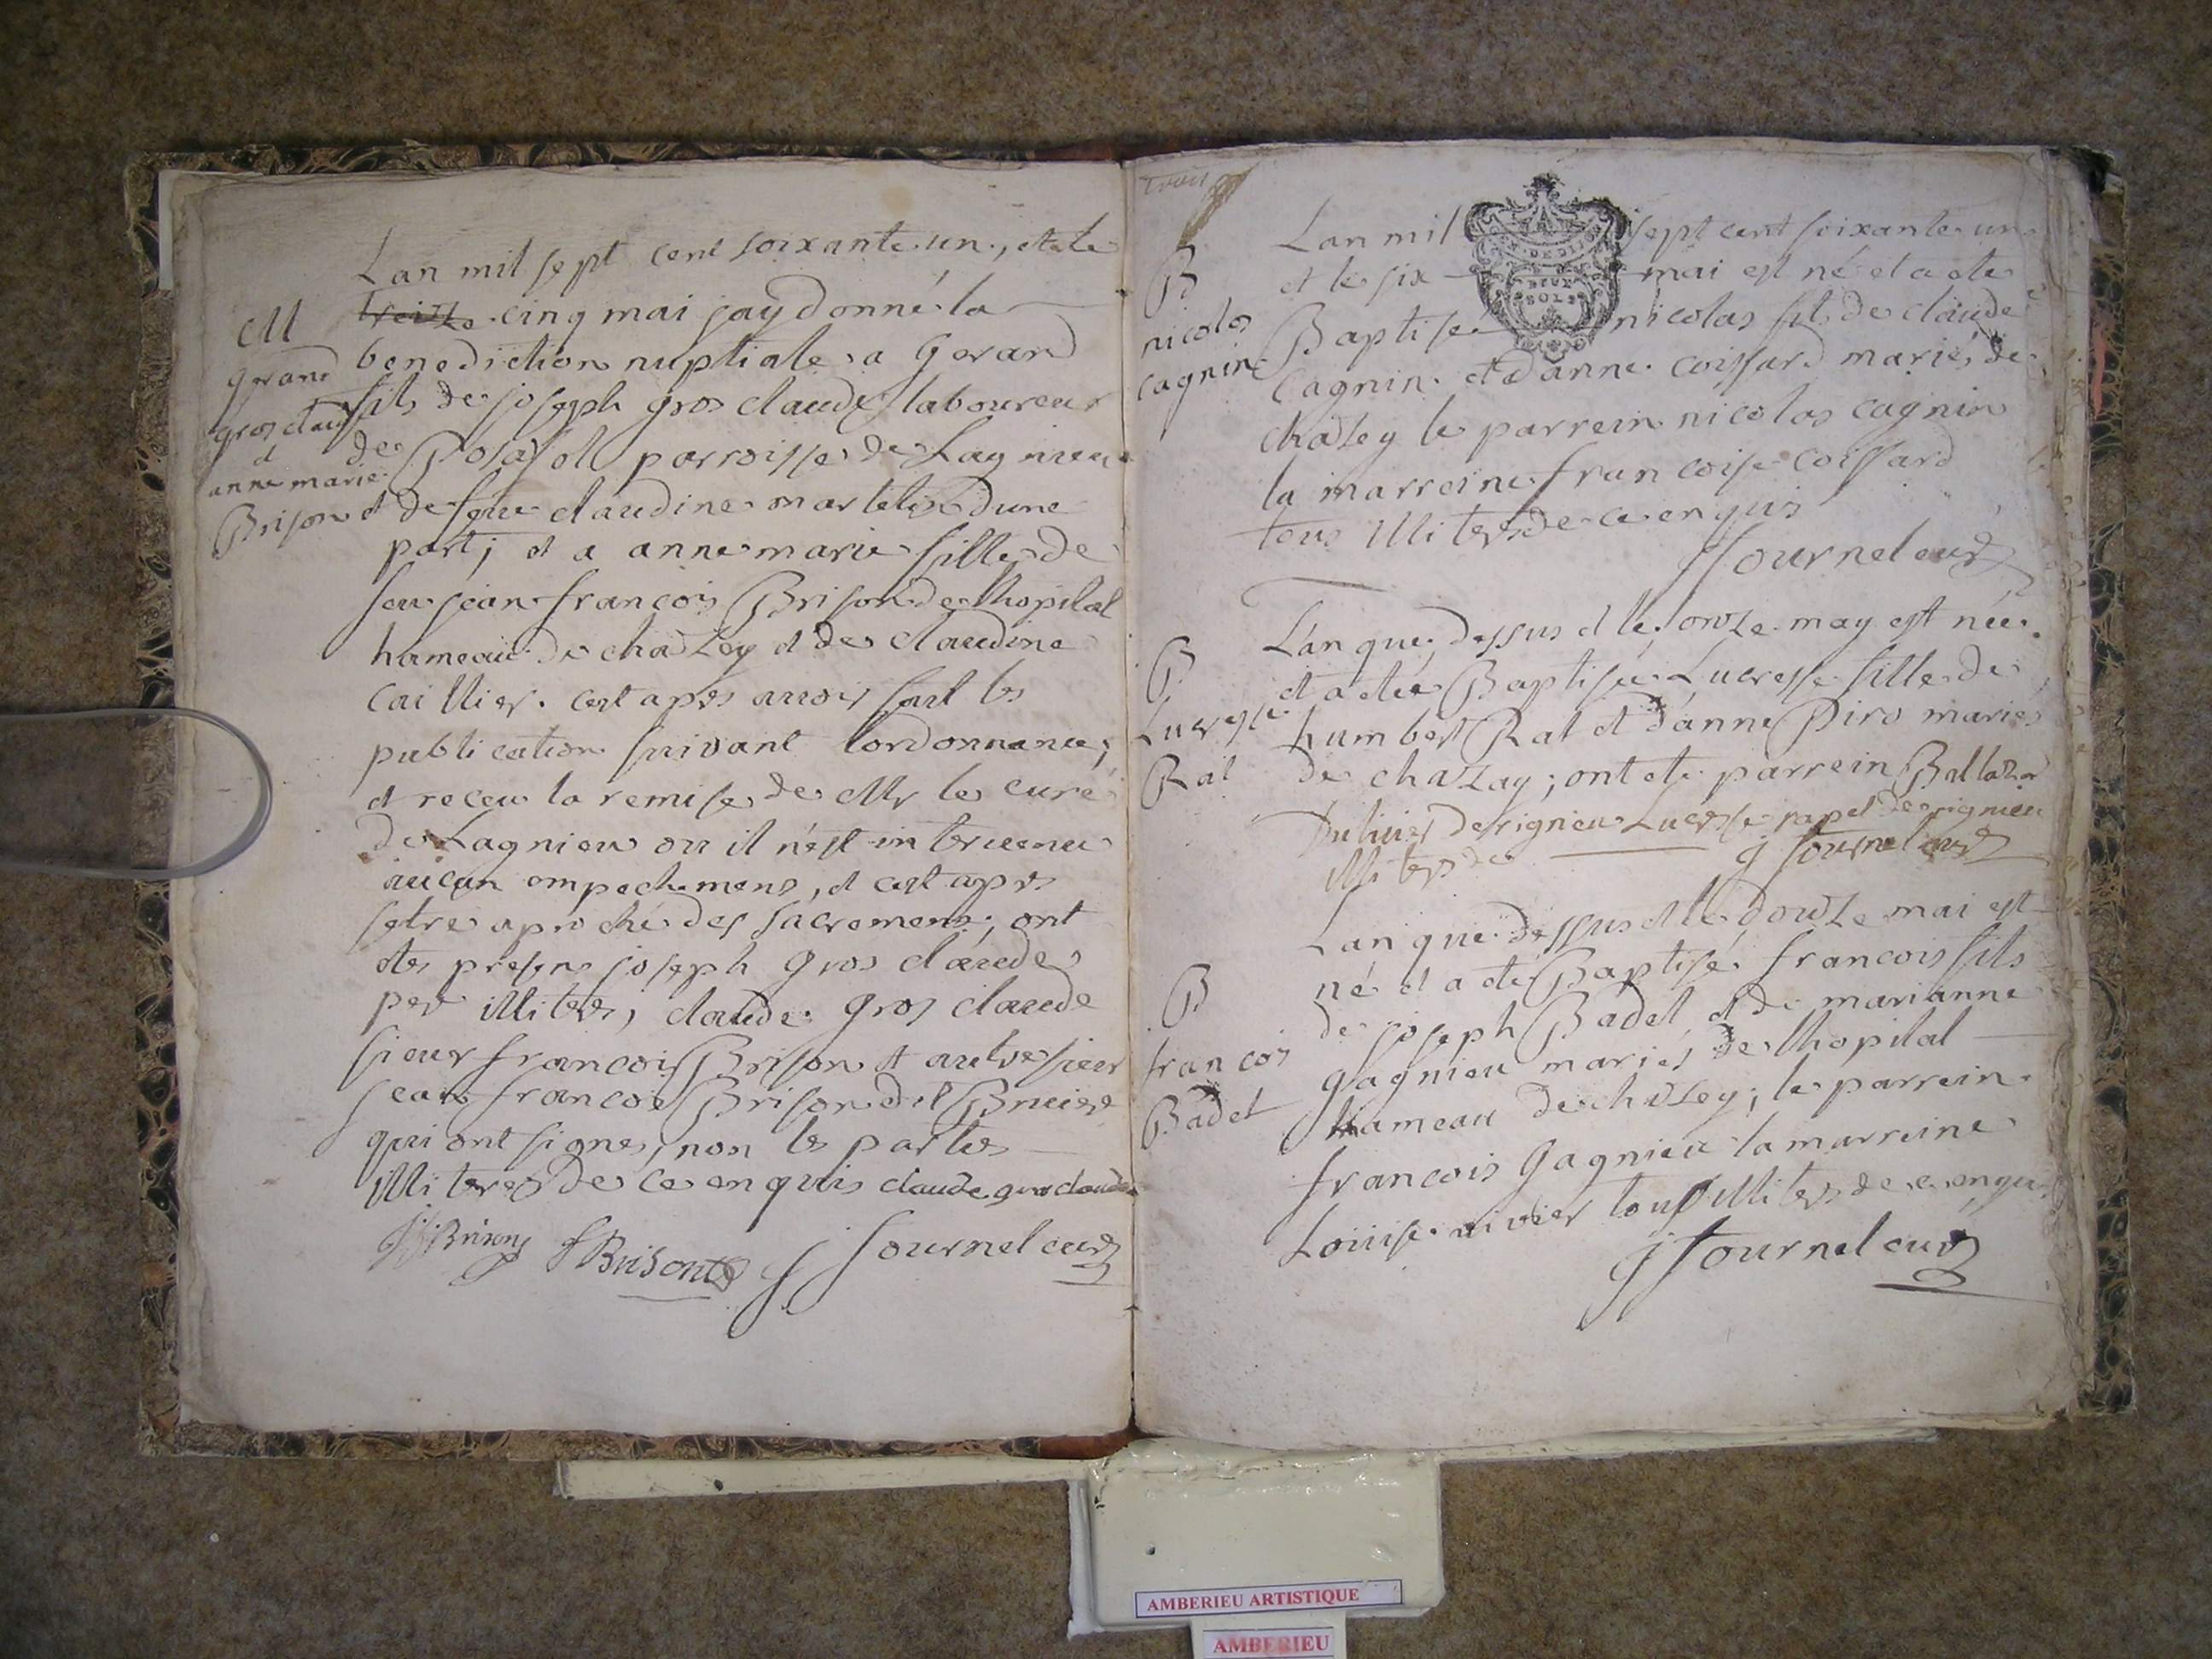 Lan mil sept cent soixante un, et le
treize cinq mai jay donné la
M
gerand
gros claude
et
anne marie
Brison
benediction nuptiale a Gerard
fils de joseph gros claude laboureur
de Posafol parroisse de Lagnieu
et de feue claudine martelin dune
part; et a anne marie fille de
feu jean francois Brison de lhopital
hameau de chaZey et de claudine
caillier. cest apres avoir fait les
publication suivant lordonnance,
et receu la remise de Mr le curé
de Lagnieu ou il n'est intervenu
aucun empechemens, et cest apres
setre aproché des sacremens; ont
etes presens joseph gros claude
per illiteré, claude gros claude
sieur francois Brison et autre sieur
jean francois Brison dit
qui ont signes, non les parties
illiteres de ce enquis claude gros claude
JF Brison f Brison j fournel curé
trois
B
nicolas
cagnin
Lan mil sept cent soixante un
DEUX
SOLS
et le six mai est né et a ete
Baptisé nicolas fils de claude
cagnin et d'anne coissard mariés de
chaZey le parrein nicolas cagnin
la marreine francoise coissard
tous illiteres de ce enquis
j fournel curé
B
Lucresse
Rat
L'an que dessus et le onze may est née
et a etée Baptisée Lucresse fille de
humbert Rat et d'anne Piro mariés
de chaZay; ont ete parrein Baltazar
Dulivier de rignieu Lucresse rapet de rignieu
illiteres de j fournel curé
B
francois
Badet
Lan que dessus et le douZe mai est
né et a eté Baptisé francois fils
de joseph Badet et de marianne
gagnieu mariés de lhopital
hameau de chaZey; le parrein
francois gagnieu la marreine
Louise nivier tous illiteres de ce enquis
j fournel curé
AMBERIEU ARTISTIQUE
AMBERIEU